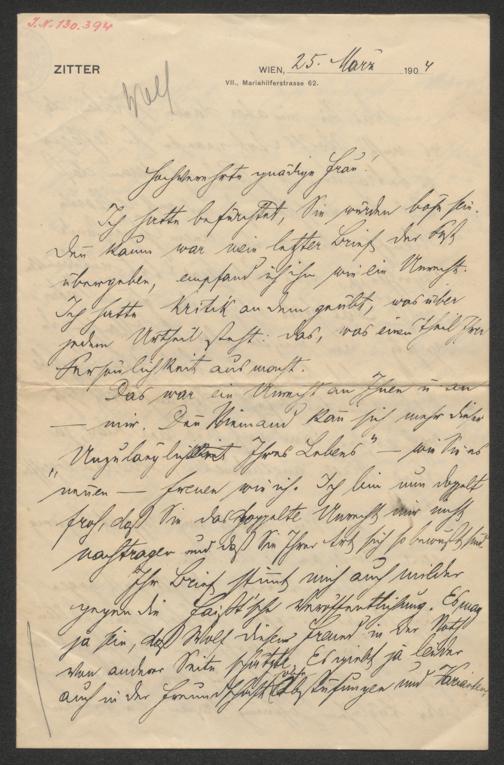 J.N. 130.394
ZITTER
WIEN, 25. März 1904
VII., Mariahilferstrasse 62.
Wolf
Hochverehrte gnädige Frau!
Ich hatte befürchtet, Sie würden böse sein.
Deñ kaum war mein letzter Brief der Post
übergeben, empfand ich ihn wie ein Unrecht.
Ich hatte Kritik an dem geübt, was über
jedem Urtheil steht: das, was einen Theil Ihrer
Persönlichkeit ausmacht.
Das war ein Unrecht an Ihnen u an
— mir. Deñ Niemand kañ sich mehr dieser
„Unzulänglichkeit Ihres Lebens" — wie Sie es
neñen — freuen wie ich. Ich bin nun doppelt
froh, daß Sie das doppelte Unrecht mir nicht
nachtragen und daß Sie Ihrer Art sich so bewußt sind
Ihr Brief stimmt mich auch milder
gegen die Faißt'sche Veröffentlichung. Es mag
ja sein, daß Wolf diesen Freund in der Noth
von anderer Seite schätzte. Es giebt ja leider
auch in der Freundschaft Abstufungen und Varianten,